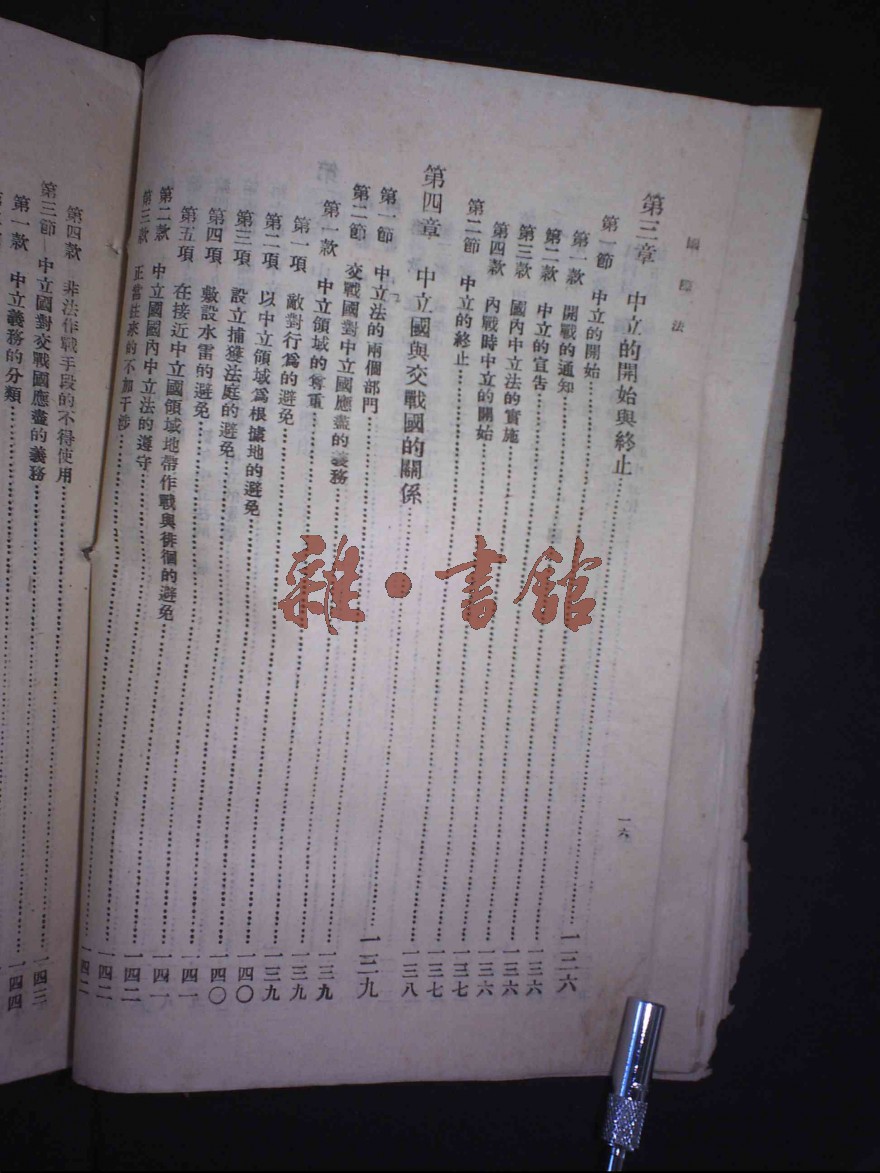 國際法
一六
第三章 中立的開始與終止……一三六
第一節 中立的開始……一三六
第一款 開戰的通知……一三六
第二款 中立的宣告……一三六
第三款 國內中立法的實施……一三七
第四款 內戰時中立的開始……一三七
第二節 中立的終止……一三八
第四章 中立國與交戰國的關係……一三九
第一節 中立法的兩個部門……一三九
第二節 交戰國對中立國應盡的義務……一三九
第一款 中立領域的尊重……一三九
第一項 敵對行爲的避免……一四〇
第二項 以中立領域爲根據地的避免……一四〇
第三項 設立捕獲法庭的避免……一四一
第四項 敷設水雷的避免……一四一
第五項 在接近中立國領域地帶作戰與徘徊的避免……一四二
第二款 中立國國內中立法的遵守……一四二
第三款 正當往來的不加干涉……一四二
第四款 非法作戰手段的不得使用……一四三
第三節 中立國對交戰國應盡的義務……一四四
第一款 中立義務的分類……
雜·書館